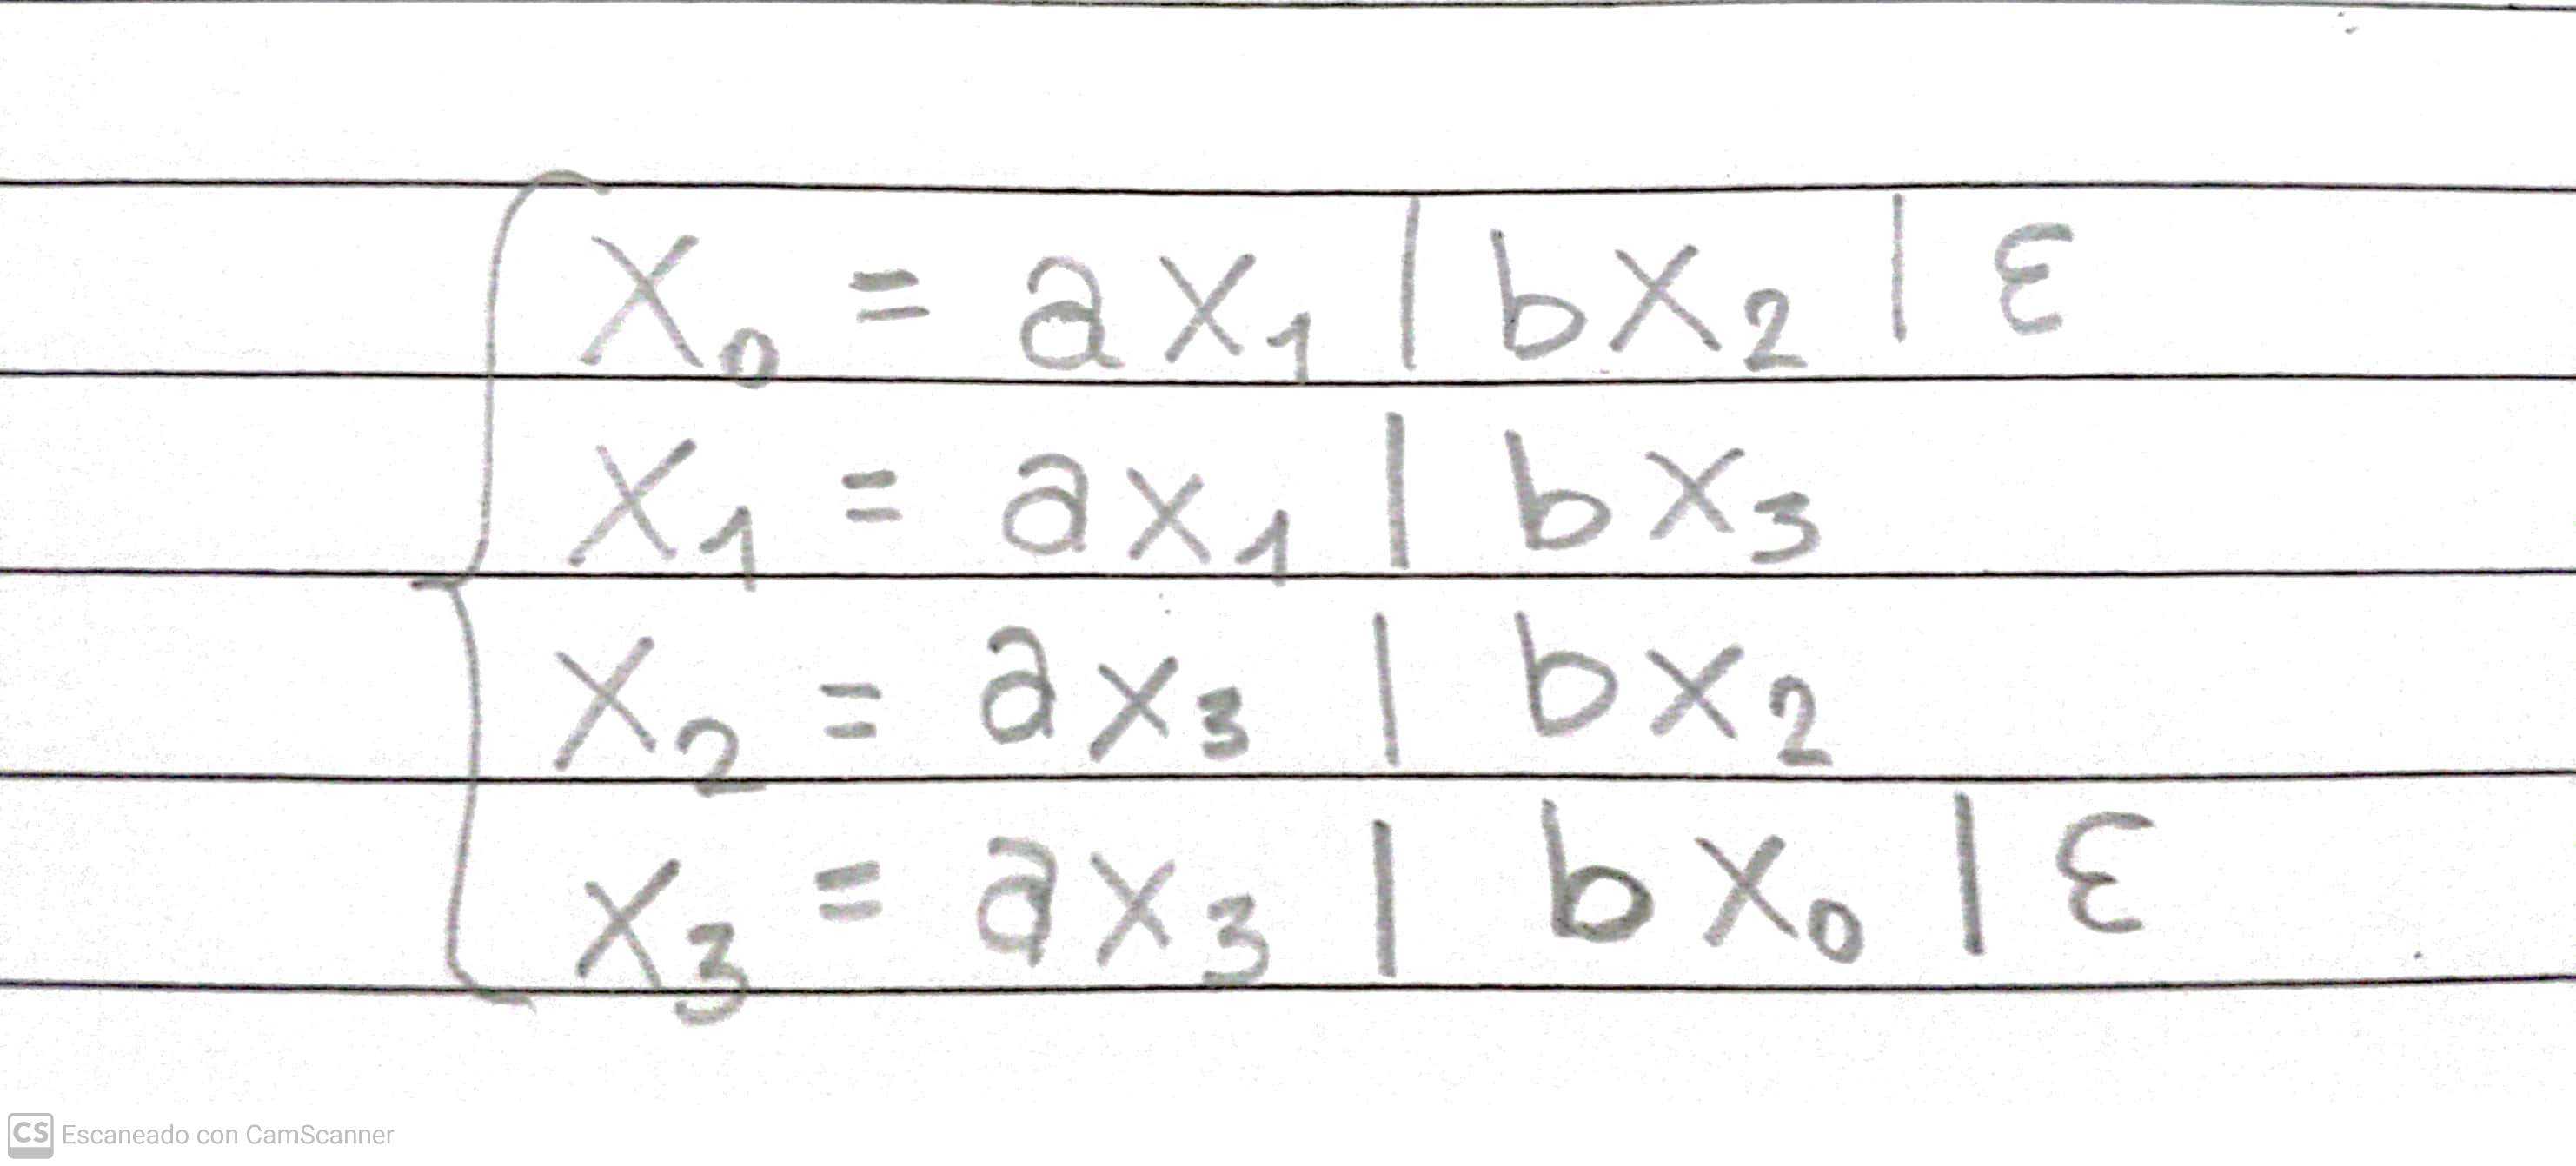 X₀ = aX₁ | bX₂ | ε
X₁ = aX₁ | bX₃
X₂ = aX₃ | bX₂
X₃ = aX₃ | bX₀ | ε
CS Escaneado con CamScanner